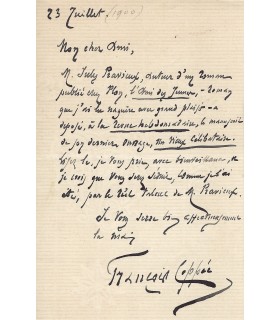 23 Juillet (1900)
Mon cher Ami,
M. Jules Pravieux, auteur d'un roman
publié chez Plon, l'Ami des Jeunes, – roman
que j'ai lu naguère avec grand plaisir – a
déposé, à la Revue hebdomadaire, le manuscrit
de son dernier ouvrage, Un Vieux Célibataire.
Lisez le, je vous prie, avec bienveillance,
je crois que vous serez séduit, comme je l'ai
été, par le réel talent de M. Pravieux.
Je vous serre bien affectueusement
la main
François Coppée